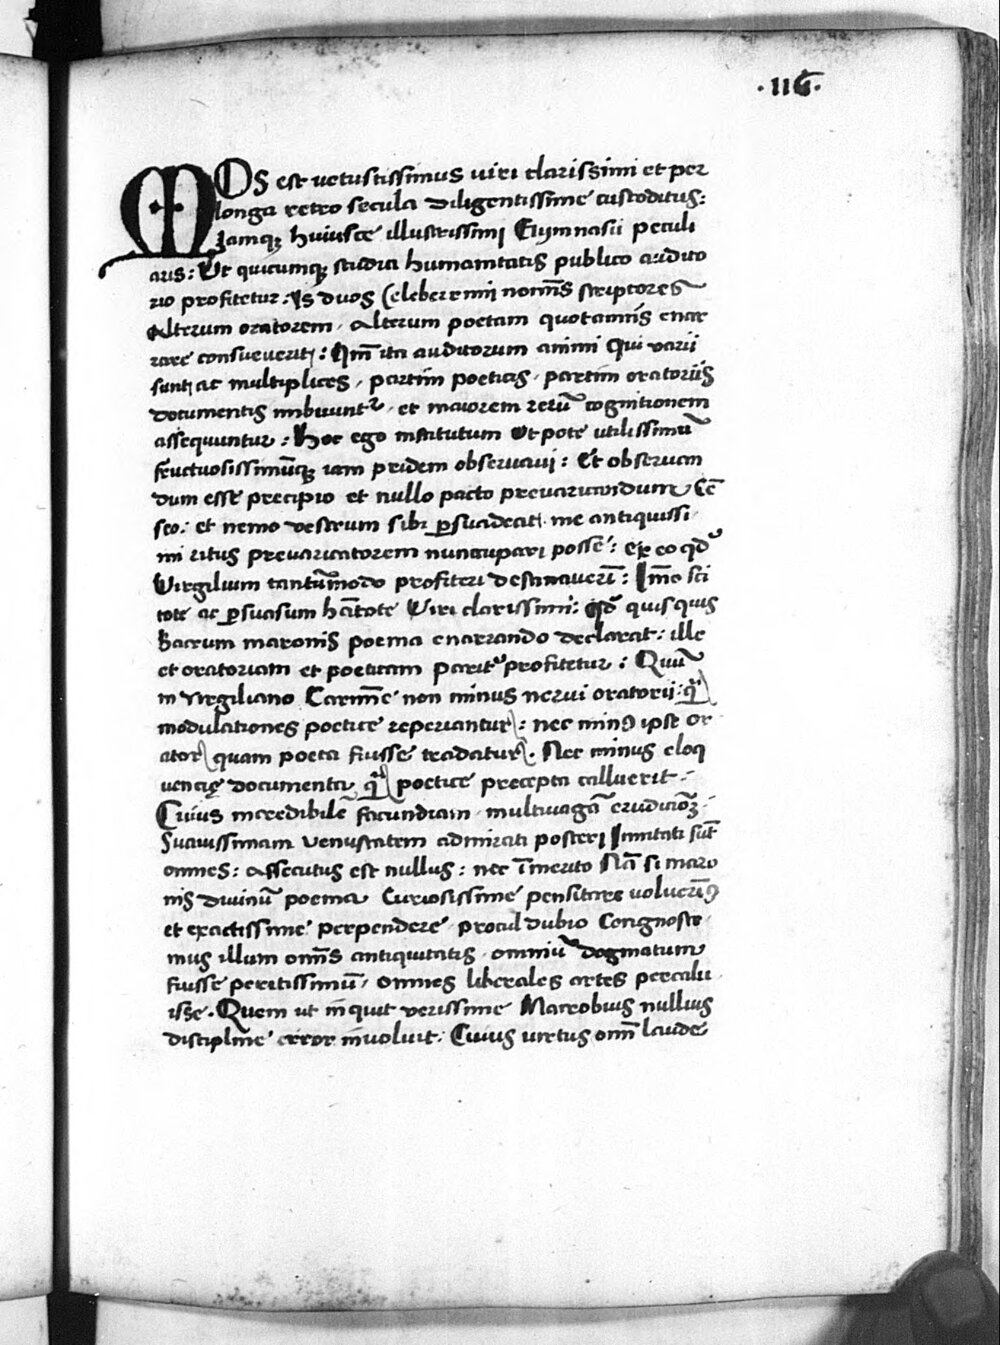 ·116·
MOS est uetustissimus uiri clarissimi et per
longa retro secula diligentissime custoditus:
Iamqʒ huiusce illustrissimi Gymnasii peculi
aris: Ut quicumqʒ studia humanitatis publico audito
rio profitetur: Is duos Celeberrimi nomīs scriptores
Alterum oratorem, Alterum poetam quotannis enar
rare consueuerit: Qm̄ ita auditorum animi Qui uarii
sunt ac multiplices, partim poeticis, partim oratoriis
documentis imbuuntr, et maiorem rerū cognitionem
assequuntur: Hoc ego institutum Ut pote utilissimū
fructuosissimūqʒ iam pridem obseruaui: Et obseruan
dum esse precipio et nullo pacto preuaricandum Cē
seo: et nemo uestrum sibi psuadeat me antiquissi
mi ritus preuaricatorem nuncupari posse: ex eo qd
Virgilium tantūmodo profiteri destinauerī: Imo sci
tote ac psuasum hītote Viri clarissimi: qd quisquis
Sacrum maronis poema enarrando declarat: ille
et oratoriam et poeticam parit profitetur: Quū
in Virgiliano Carmīe non minus nerui oratorii: q̄
modulationes poetice reperiantur: nec min9 ipse or
ator quam poeta fuisse tradatur. Nec minus eloq
uencię documenta q̄ poetice precepta calluerit:
Cuius incredibilē facundiam, multiuagā eruditioʒ
Suauissimam uenustatem admirati posteri Imitati sūt
omnes: Assecutus est nullus: nec īmerito Nā si maro
nis diuinū poema Curiosissime pensitare uoluerim9
et exactissime perpendere, procul dubio Congnosce
mus illum omīs antiquitatis, omniū dogmatum
fuisse peritissimū, omnes liberales artes percallu
isse. Quem ut inquit uerissime Macrobius nullius
discipline error inuoluit. Cuius uirtus omī laude